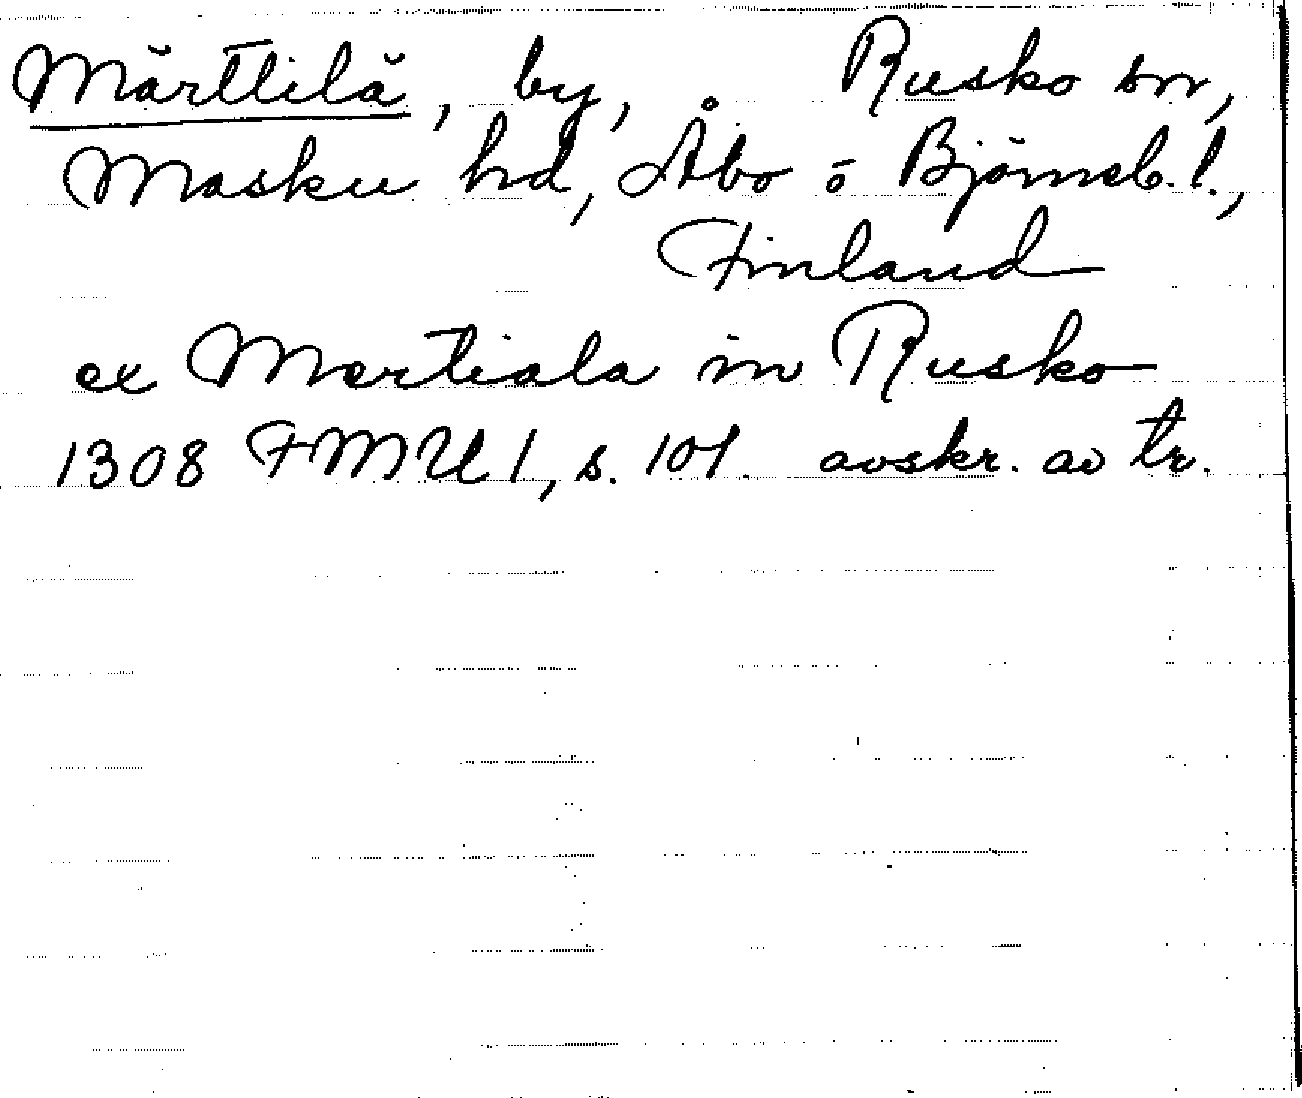 Märttilä, by, Rusko sn,
Masku hd, Åbo o Björneb. l.,
Finland
ex Mertiala in Rusko
1308 FMU 1, s. 101. avskr. av tr.